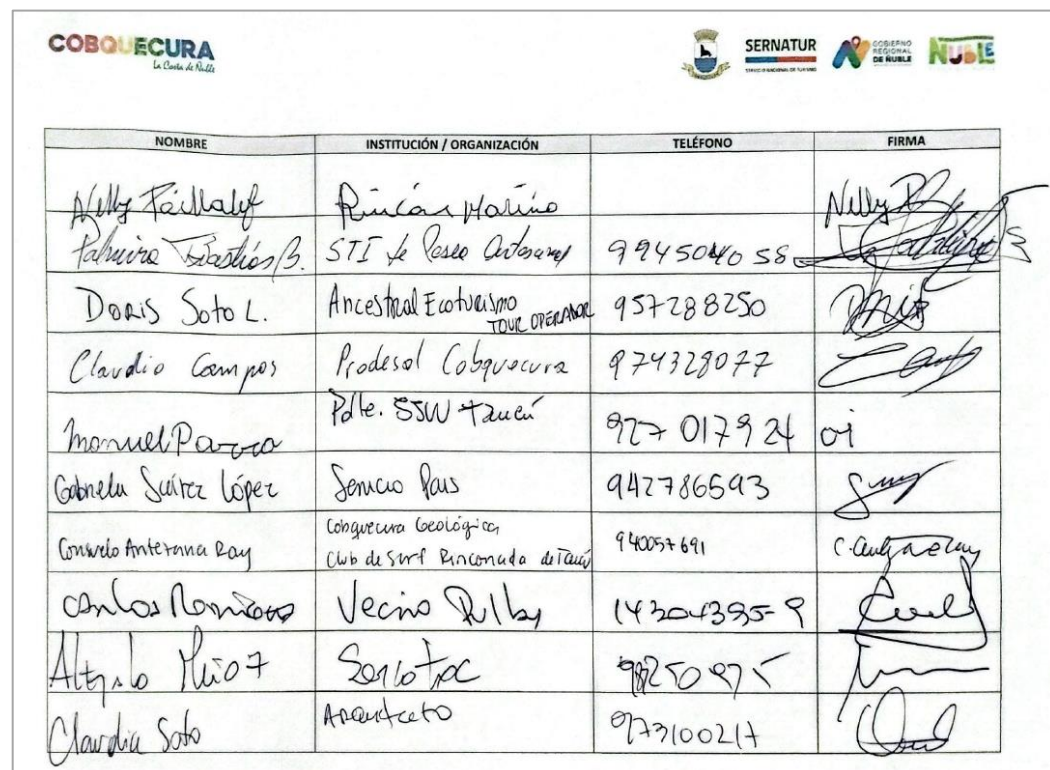 COBQUECURA
La Costa de Ñuble
SERNATUR
SERVICIO NACIONAL DE TURISMO
GOBIERNO REGIONAL DE ÑUBLE
ÑUBLE
NOMBRE INSTITUCIÓN / ORGANIZACIÓN TELÉFONO FIRMA
Nelly Rincón Marino Nelly
Palmira Bastías B. STI de Paseo Artesanal 994504058
Doris Soto L. Ancestral Ecoturismo TOUR OPERADOR 957288250
Claudio Campos Prodesal Cobquecura 974328077
Manuel Parra Pdte. SSW Taucú 927017924
Gabriela Suárez López Servicio País 942786593
Consuelo Antezana Ray Cobquecura Geológica
Club de Surf Rinconada de Taucú 940057691
Carlos Vecino 14304395-9
Claudia Soto Arquitecto 973100217